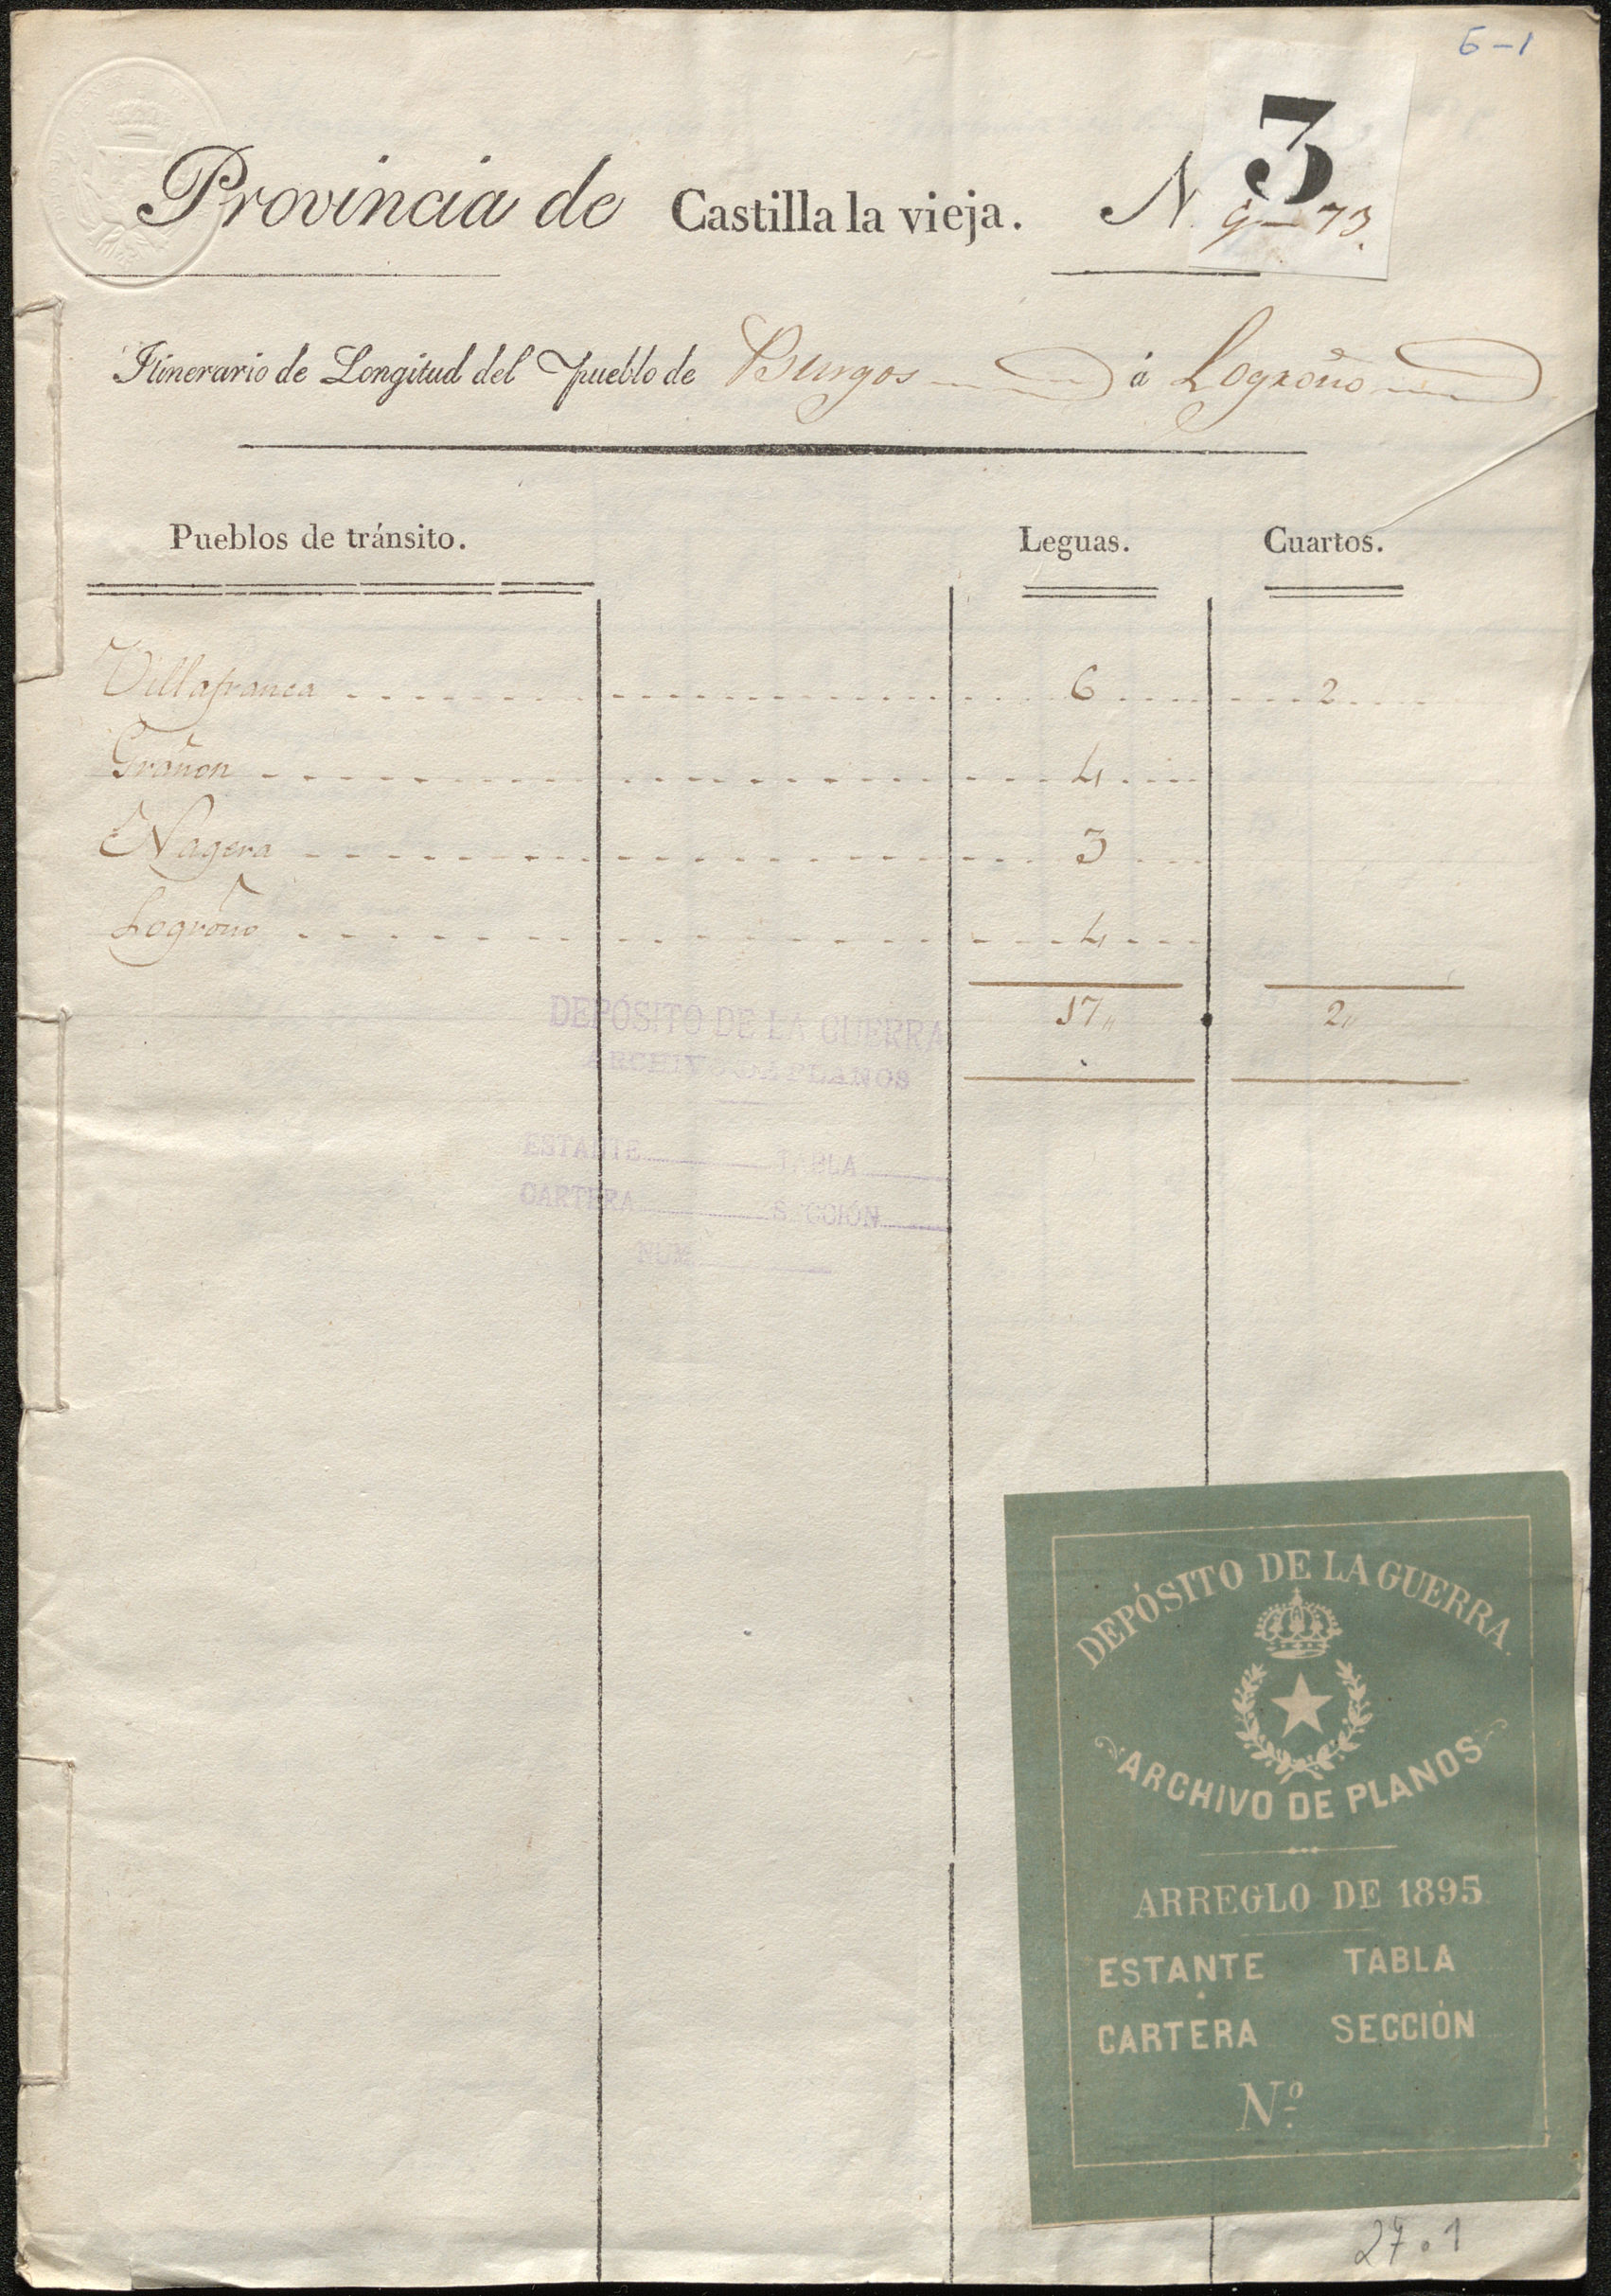 6-1
Provincia de Castilla la vieja. N. 3
9-73.
Itinerario de Longitud del Pueblo de Burgos á Logroño
Pueblos de tránsito. Leguas. Cuartos.
Villafranca 6 2
Grañon 4
Nagera 3
Logroño 4
17 2
DEPÓSITO DE LA GUERRA
ARCHIVO DE PLANOS
ESTANTE TABLA
CARTERA SECCIÓN
NUM
DEPÓSITO DE LA GUERRA
ARCHIVO DE PLANOS
ARREGLO DE 1895
ESTANTE TABLA
CARTERA SECCIÓN
Nº
27.1